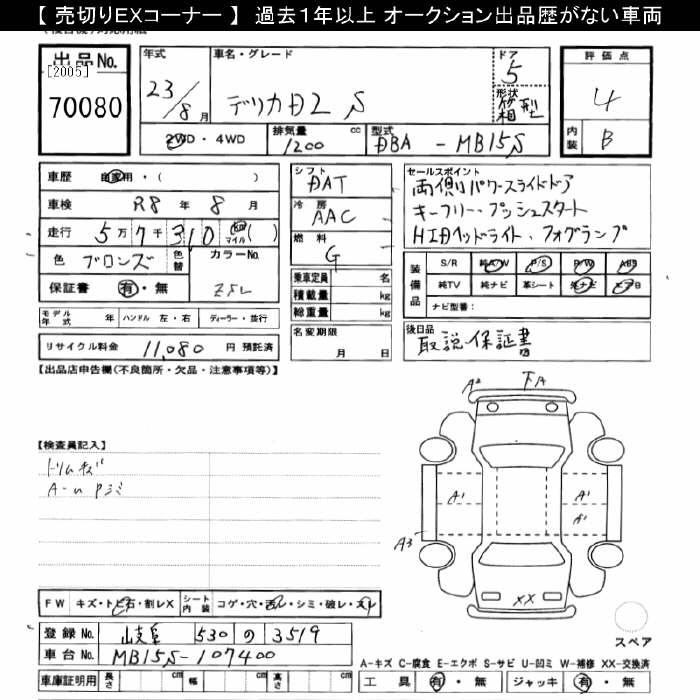 【 売切りEXコーナー 】 過去1年以上 オークション出品歴がない車両
出品No.
[2005]
70080
年式
23/8月
車名・グレード
デリカD2 S
ドア
5
形状
箱型
評価点
4
内装
B
2WD・4WD
排気量
1200 cc
型式
DBA - MB15S
車歴 自家用・( )
車検 R8 年 8 月
走行 5万7千310 km マイル ( )
色 ブロンズ 色替
カラーNo.
ZSL
保証書 有・無
シフト
DAT
冷房
AAC
燃料
G
乗車定員 名
積載量 kg
総重量 kg
セールスポイント
両側パワースライドドア
キーフリー・プッシュスタート
HIDヘッドライト・フォグランプ
装備品
S/R 純A/W P/S P/W ABS
純TV 純ナビ 革シート 社ナビ エアB
ナビ型番:
モデル年式 年 ハンドル 左・右 ディーラー・並行
リサイクル料金 11,080 円 預託済
名変期限
月 日
後日品
取説・保証書
【出品店申告欄(不良箇所・欠品・注意事項等)】
A2 下A
【検査員記入】
トリムキズ
A-u Pシミ
A1 A1
A1
A3
XX
スペア
FW キズ・トビ石・割レX シート内装 コゲ・穴・汚レ・シミ・破レ・スレ
登録No. 岐阜 530 の 3519
車台No. MB15S-107400
車庫証明用 長さ cm 幅 cm 高さ cm
A-キズ C-腐食 E-エクボ S-サビ U-凹ミ W-補修 XX-交換済
工具 有・無 ジャッキ 有・無